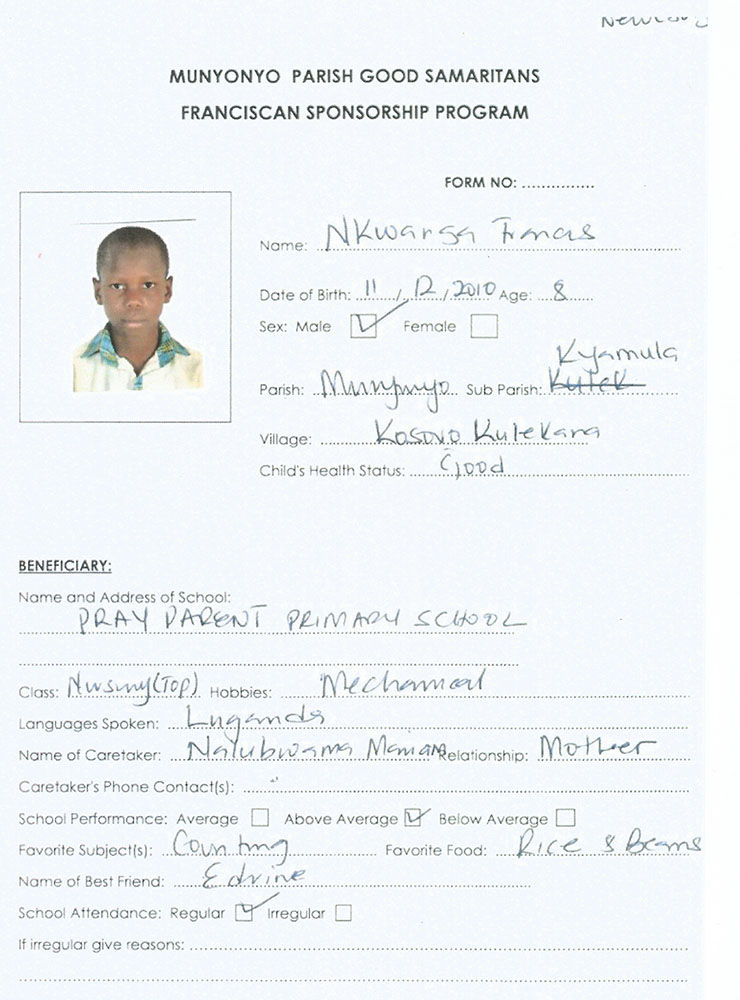 MUNYONYO PARISH GOOD SAMARITANS
FRANCISCAN SPONSORSHIP PROGRAM
FORM NO: ..............
Name: Nkwanga Francis
Date of Birth: 11 / 12 / 2010 Age: 8
Sex: Male ☑ Female ☐
Kyamula
Parish: Munyonyo Sub Parish: Kulek
Village: Kosovo Kulekana
Child's Health Status: Good
BENEFICIARY:
Name and Address of School:
PRAY PARENT PRIMARY SCHOOL
Class: (Top) Hobbies: Mechanical
Languages Spoken: Luganda
Name of Caretaker: Nalubwama Relationship: Mother
Caretaker's Phone Contact(s):
School Performance: Average ☐ Above Average ☑ Below Average ☐
Favorite Subject(s): Counting Favorite Food: Rice & Beans
Name of Best Friend: Edrine
School Attendance: Regular ☑ Irregular ☐
If irregular give reasons: